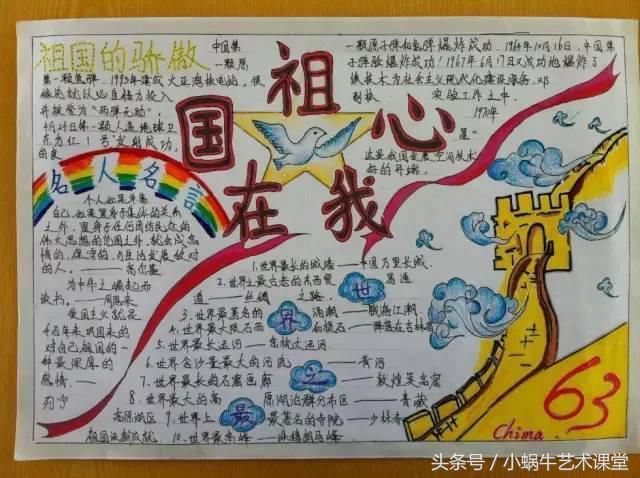 祖国的骄傲
中国第
一颗原
第一颗氢弹. 1993年建成大亚湾核电站，
4月24日第一颗人造地球卫
东方红1号发射成功，
一颗原子弹和氢弹爆炸成功. 1964年10月16日，中国第
子弹爆炸成功！1967年6月17日又成功地爆炸了
技术为社会主义现代化建设服务. 邓
实验工作之中.
1970年
星"
这是我国发展空间技术
的开端.
祖
国
心
在
我
名人名言
个人如果单靠
自己，如果置身于集体的关系
之外，置身于任何团结民众的
伟大思想的范围之外，就会成怠
惰的，保守的，与生活发展敌对
的人。——高尔基
为中华之崛起而
读书。——周恩来
爱国主义就是
千百年来巩固来的
对自己祖国的一
种最深厚的
感情。——
列宁
1.世界最长的城墙——中国万里长城.
2.世界上最古老的东西交通
道——丝绸之路.
3.世界最著名的涌潮——钱塘江潮.
4.世界最大陨石雨和陨石——降落在吉林省
5.世界最长运河——京杭大运河
6.世界含沙量最大的河流——黄河
7.世界最长的石窟画廊——敦煌莫高窟
8.世界最大的高原湖泊群分布区——青藏
高原湖区
9.世界上最著名的寺院——少林寺
10.世界最高峰——珠穆朗玛峰
世
界
之
最
祖国诞新成就
63
China
头条号／小蜗牛艺术课堂